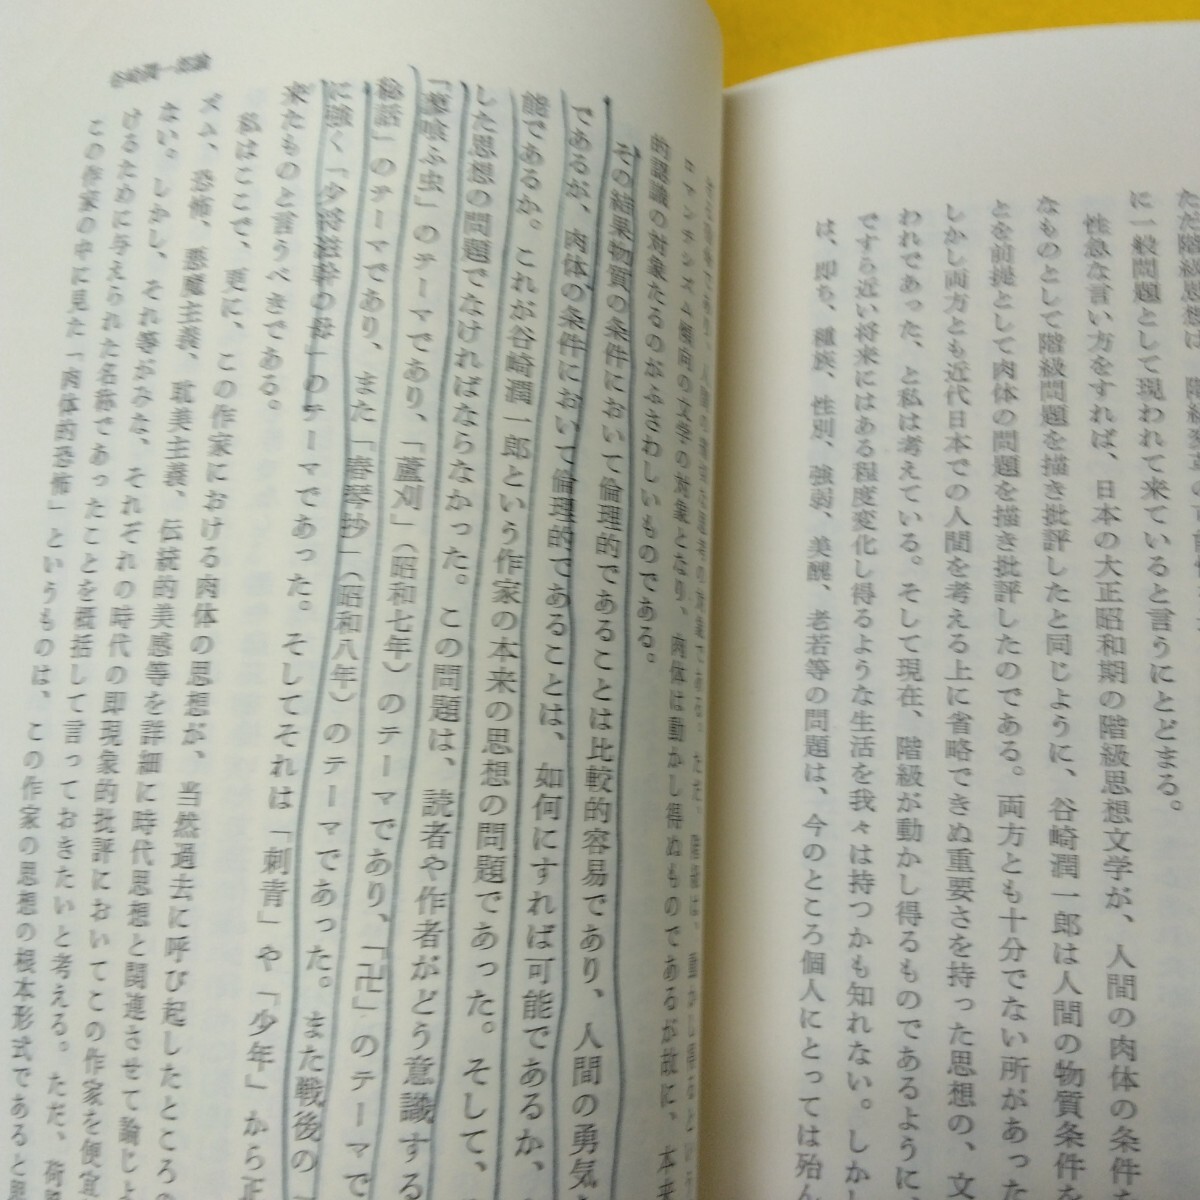 ただ階級思想は、階級変革の可能性
に一般問題として現われて来ていると言うにとどまる。
性急な言い方をすれば、日本の大正昭和期の階級思想文学が、人間の肉体の条件
なものとして階級問題を描き批評したと同じように、谷崎潤一郎は人間の物質条件を
とを前提として肉体の問題を描き批評したのである。両方とも十分でない所があった
しかし両方とも近代日本での人間を考える上に省略できぬ重要さを持った思想の、文
われであった、と私は考えている。そして現在、階級が動かし得るものであるように、
ですら近い将来にはある程度変化し得るような生活を我々は持つかも知れない。しか
は、即ち、種族、性別、強弱、美醜、老若等の問題は、今のところ個人にとっては殆ん
谷崎潤一郎論
ロマンチシズム傾向の文学の対象となり、肉体は動かし得ぬものであるが故に、本来
的認識の対象たるのがふさわしいものである。
その結果物質の条件において倫理的であることは比較的容易であり、人間の勇気
であるが、肉体の条件において倫理的であることは、如何にすれば可能であるか、
能であるか。これが谷崎潤一郎という作家の本来の思想の問題であった。そして、
した思想の問題でなければならなかった。この問題は、読者や作者がどう意識する
「蓼喰ふ虫」のテーマであり、「蘆刈」(昭和七年)のテーマであり、「卍」のテーマで
秘話」のテーマであり、また「春琴抄」(昭和八年)のテーマであった。また戦後の「
に強く「少将滋幹の母」のテーマであった。そしてそれは「刺青」や「少年」から正
来たものと言うべきである。
私はここで、更に、この作家における肉体の思想が、当然過去に呼び起したところの
ズム、恐怖、悪魔主義、耽美主義、伝統的美感等を詳細に時代思想と関連させて論じよ
ない。しかし、それ等がみな、それぞれの時代の即現象的批評においてこの作家を便宜
けるために与えられた名称であったことを概括して言っておきたいと考える。ただ、荷
この作家の中に見た「肉体的恐怖」というものは、この作家の思想の根本形式であると思